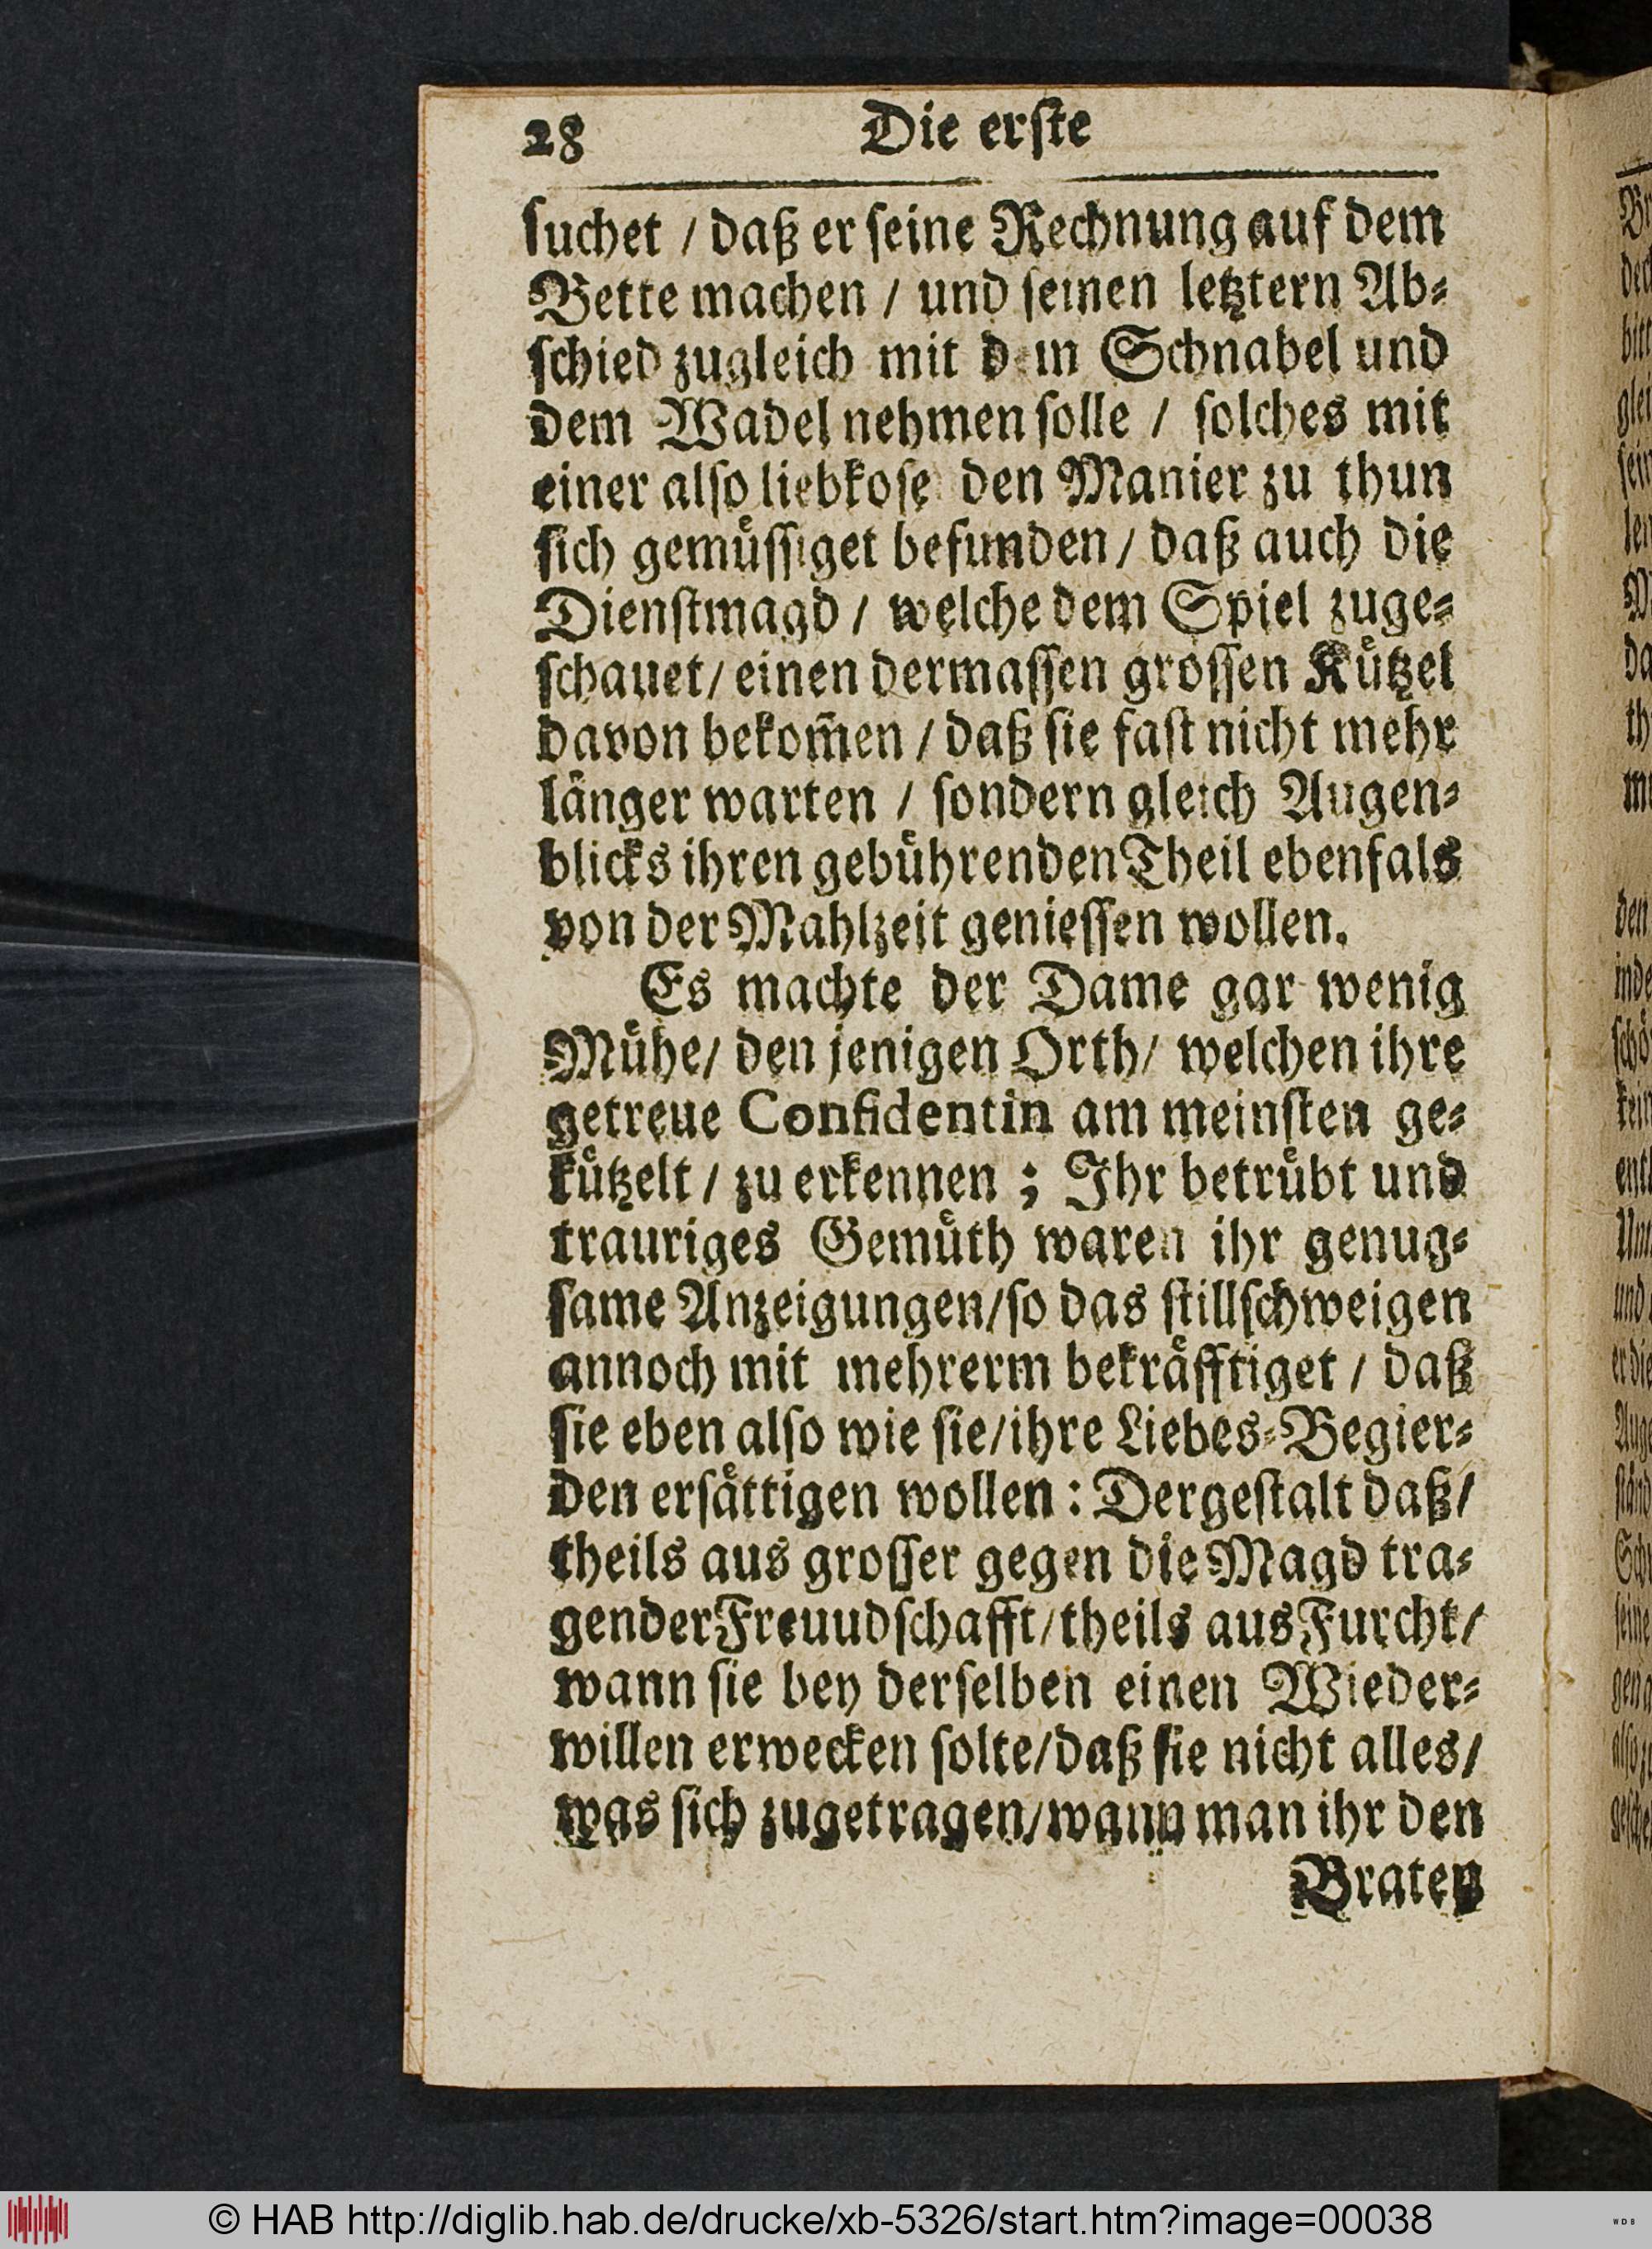 28 Die erſte
ſuchet / daß er ſeine Rechnung auf dem
Bette machen / und ſeinen letztern Ab⸗
ſchied zugleich mit dem Schnabel und
dem Wadel nehmen ſolle / ſolches mit
einer alſo liebkoſe den Manier zu thun
ſich gemuͤſſiget befunden / daß auch die
Dienſtmagd / welche dem Spiel zuge⸗
ſchauet / einen dermaſſen groſſen Kuͤtzel
davon bekom̃en / daß ſie faſt nicht mehr
laͤnger warten / ſondern gleich Augen⸗
blicks ihren gebuͤhrenden Theil ebenfals
von der Mahlzeit genieſſen wollen.
Es machte der Dame gar wenig
Muͤhe / den jenigen Orth / welchen ihre
getreue Confidentin am meinſten ge⸗
kuͤtzelt / zu erkennen ; Ihr betruͤbt und
trauriges Gemuͤth waren ihr genug⸗
ſame Anzeigungen / ſo das ſtillſchweigen
annoch mit mehrerm bekraͤfftiget / daß
ſie eben alſo wie ſie / ihre Liebes⸗Begier⸗
den erſaͤttigen wollen : Dergeſtalt daß /
theils aus groſſer gegen die Magd tra⸗
gender Freuudſchafft / theils aus Furcht /
wann ſie bey derſelben einen Wieder⸗
willen erwecken ſolte / daß ſie nicht alles /
was ſich zugetragen / wann man ihr den
Braten
© HAB http://diglib.hab.de/drucke/xb-5326/start.htm?image=00038
WDB